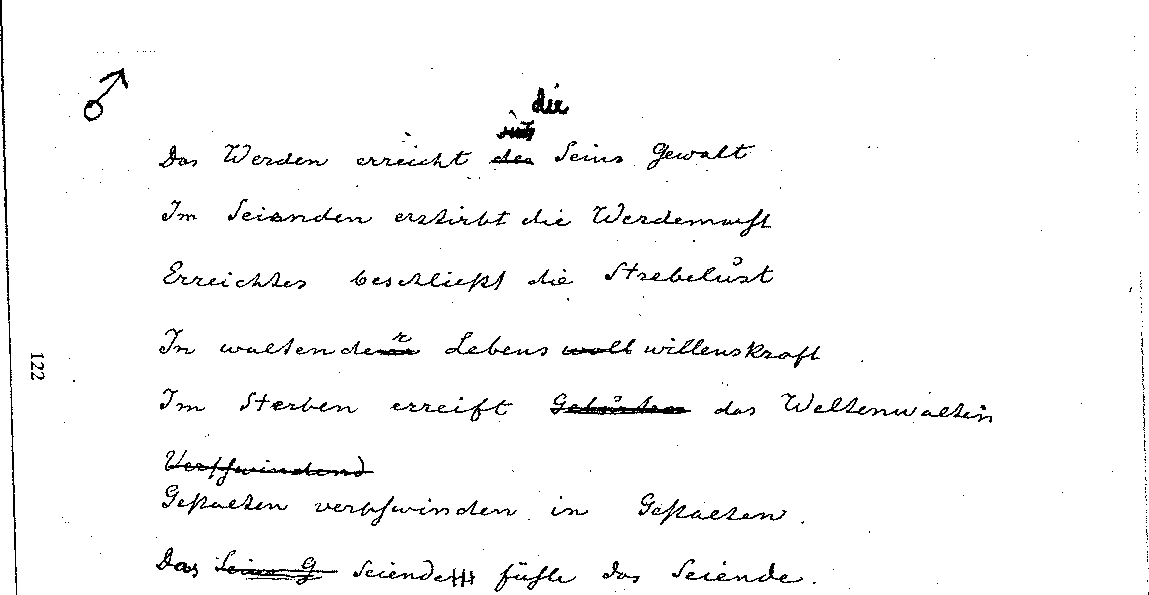 ♂
die
Das Werden erreicht des Seins Gewalt
Im Seienden erstirbt die Werdemacht
Erreichtes beschließt die Strebelust
In waltender Lebens woll willenskraft
122
Im Sterben erreift das Weltenwalten
Verschwindend
Gestalten verschwinden in Gestalten.
Das Seins G Seiende fühle das Seiende.